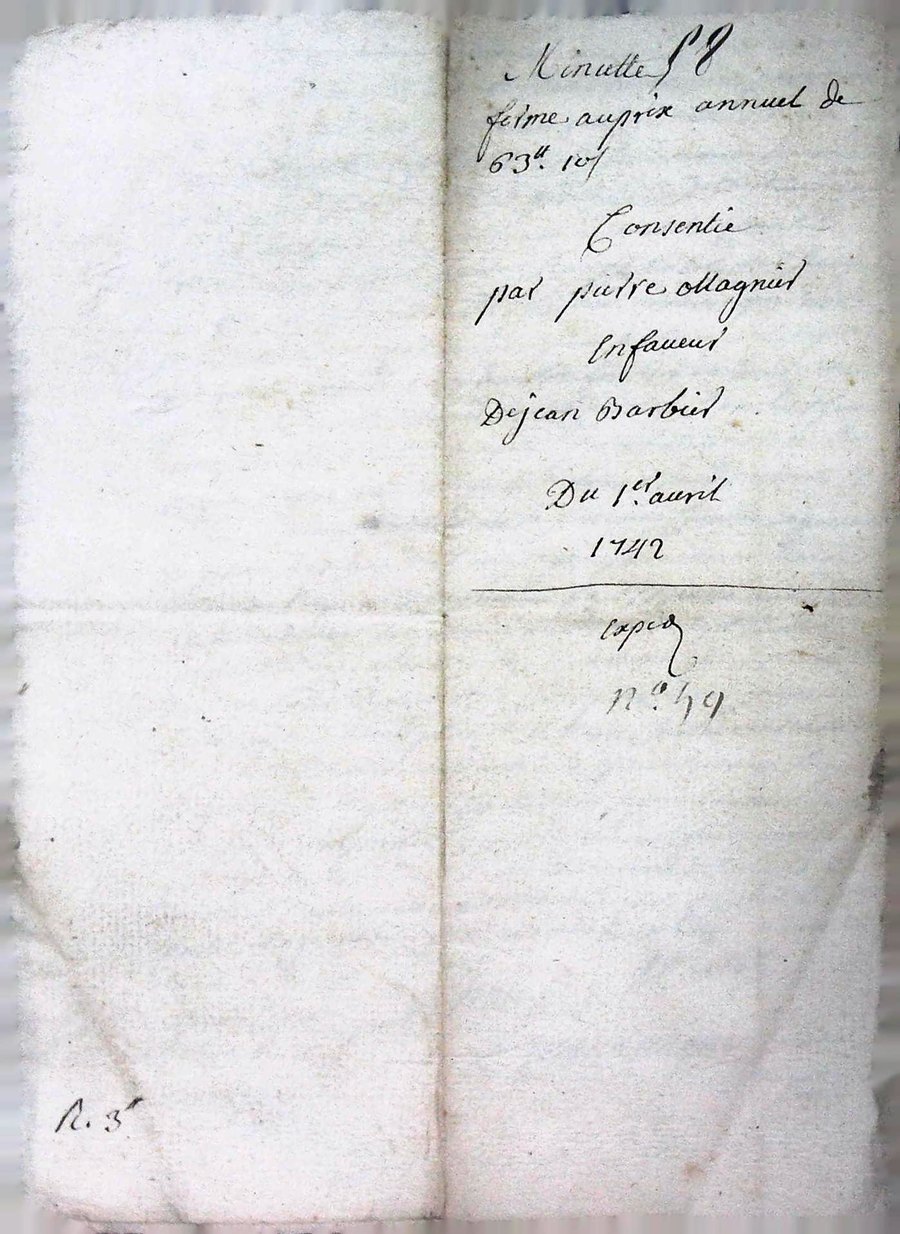 Minutte 58
ferme auprix annuel de
63tt. 10s
Consentie
par pierre Magnier
Enfaueur
Dejean Barbier
Du 1er. auril
1742
Exped
n°. 59
R. 3s